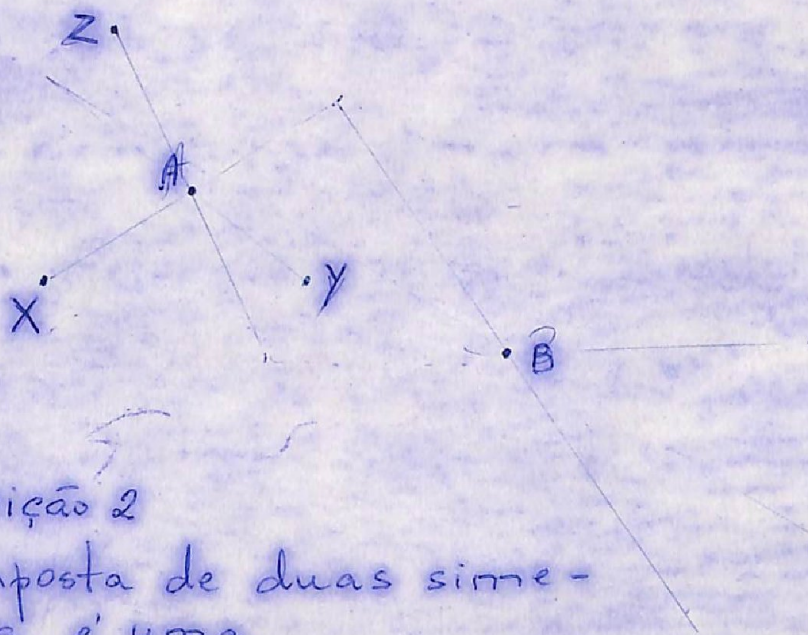 Z
A
X
Y
B
ição 2
posta de duas sime-
é uma